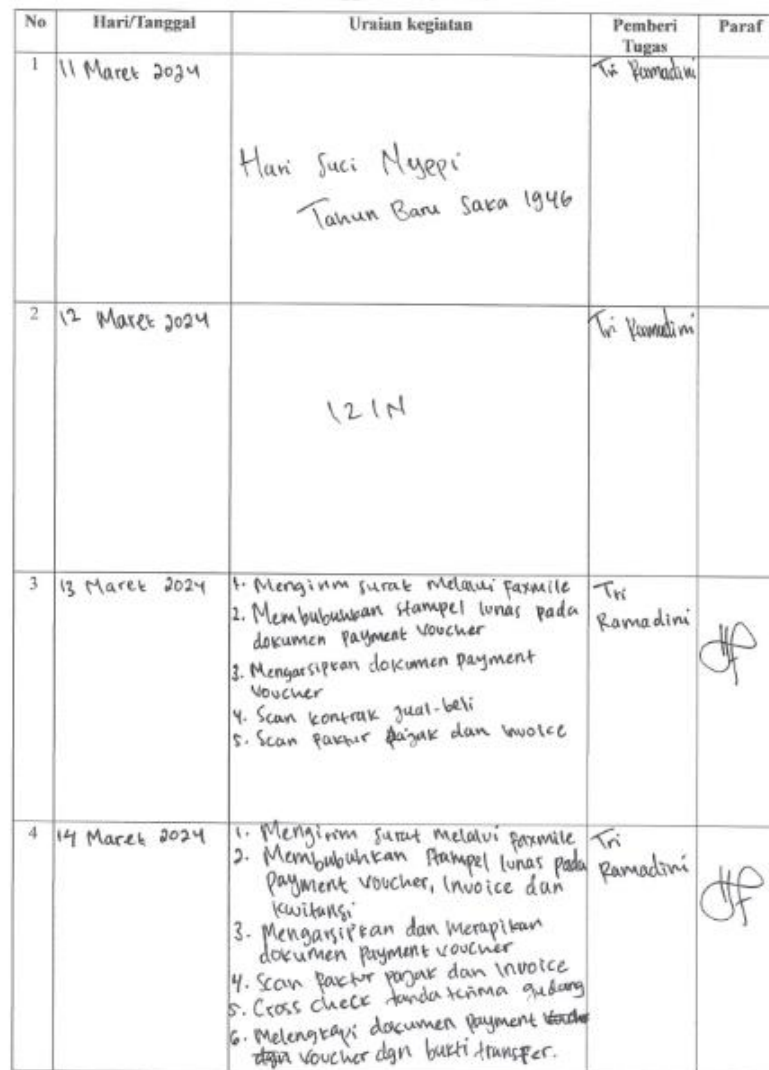 No Hari/Tanggal Uraian kegiatan Pemberi Tugas Paraf
1 11 Maret 2024 Tri Ramadini
Hari Suci Nyepi
Tahun Baru Saka 1946
2 12 Maret 2024 Tri Ramadini
IZIN
3 13 Maret 2024 Tri Ramadini
1. Mengirim surat melalui faxmile
2. Membubuhkan stampel lunas pada
dokumen payment voucher
3. Mengarsipkan dokumen payment
voucher
4. Scan kontrak jual-beli
5. Scan faktur pajak dan invoice
4 14 Maret 2024 Tri Ramadini
1. Mengirim surat melalui faxmile
2. Membubuhkan stampel lunas pada
payment voucher, invoice dan
kwitansi
3. Mengarsipkan dan merapikan
dokumen payment voucher
4. Scan faktur pajak dan invoice
5. Cross check tanda terima gudang
6. Melengkapi documen payment
voucher dgn bukti transfer.